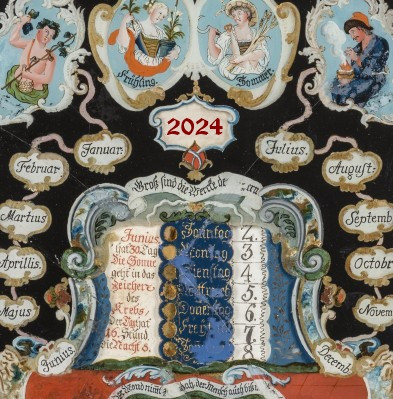 Frühling.
Sommer.
2024
Januar:
Julius.
Februar
August:
Martius
Septemb
Aprillis.
Octobr
Majus
Novem
Junius.
Decemb.
Groß sind die Wercke de
Junius,
hat 30 Tag
Die Sonne
geht in das
Zeichen
des
Krebs
Der Tag hat
16. Stund,
die Nacht 8.
Sonntag 2.
Montag 3.
Dienstag 4.
5.
Donerstag 6.
Freytag 7.
8
der Mensch auch